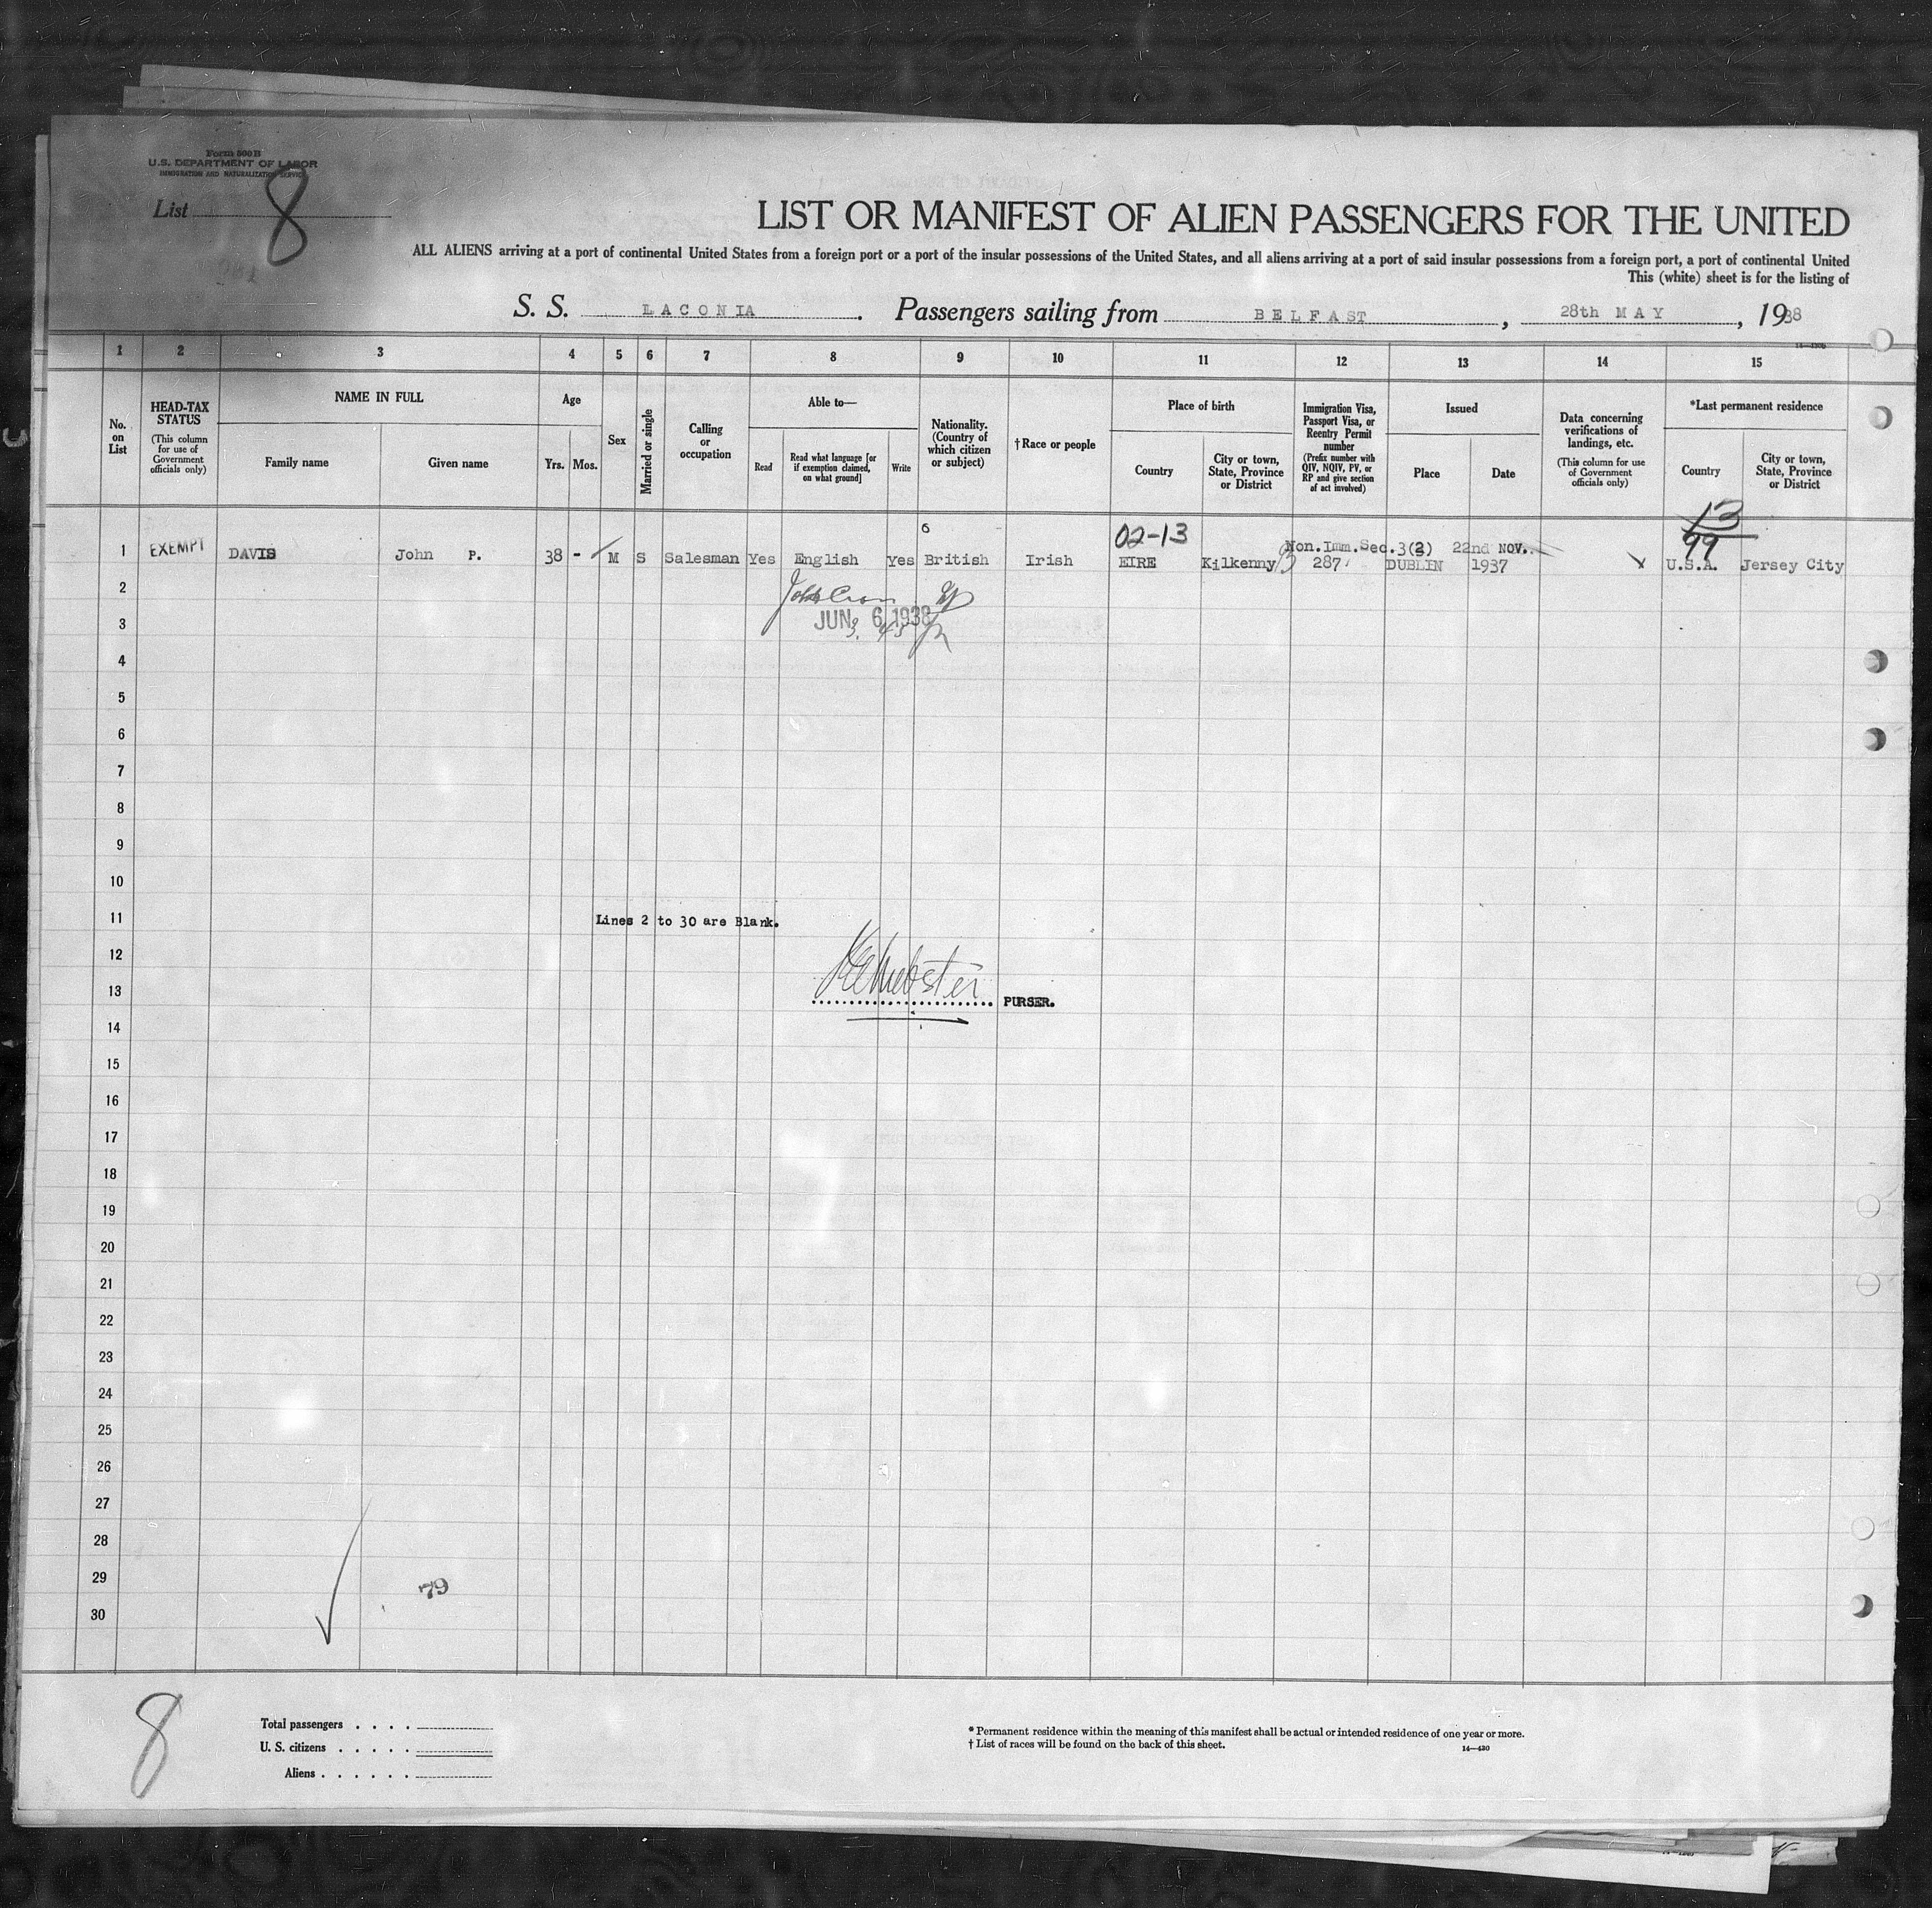 Form 500 B
U.S. DEPARTMENT OF LABOR
IMMIGRATION AND NATURALIZATION SERVICE
List 8
LIST OR MANIFEST OF ALIEN PASSENGERS FOR THE UNITED
ALL ALIENS arriving at a port of continental United States from a foreign port or a port of the insular possessions of the United States, and all aliens arriving at a port of said insular possessions from a foreign port, a port of continental United
This (white) sheet is for the listing of
S. S. LACONIA. Passengers sailing from BELFAST, 28th MAY, 1938
1 2 3 4 5 6 7 8 9 10 11 12 13 14 15
No. on List
HEAD-TAX STATUS
(This column for use of Government officials only)
NAME IN FULL
Family name
Given name
Age
Yrs. Mos.
Sex
Married or single
Calling or occupation
Able to—
Read
Read what language [or if exemption claimed, on what ground]
Write
Nationality. (Country of which citizen or subject)
†Race or people
Place of birth
Country
City or town, State, Province or District
Immigration Visa, Passport Visa, or Reentry Permit number
(Prefix number with QIV, NQIV, PV, or RP and give section of act involved)
Issued
Place
Date
Data concerning verifications of landings, etc.
(This column for use of Government officials only)
*Last permanent residence
Country
City or town, State, Province or District
6 02-13 13
Non.Imm.Sec.3(2) 22nd NOV. 99
1 EXEMPT DAVIS John P. 38 - M S Salesman Yes English Yes British Irish EIRE Kilkenny 287 DUBLIN 1937 U.S.A. Jersey City
2
3 JUN 6 1938
4
5
6
7
8
9
10
11 Lines 2 to 30 are Blank.
12
13 Webster PURSER.
14
15
16
17
18
19
20
21
22
23
24
25
26
27
28
29 79
30
8
Total passengers . . . .
U. S. citizens . . . . .
Aliens . . . . . .
* Permanent residence within the meaning of this manifest shall be actual or intended residence of one year or more.
† List of races will be found on the back of this sheet.
14—430